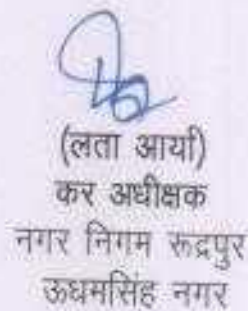 (लता आर्या)
कर अधीक्षक
नगर निगम रूद्रपुर
ऊधमसिंह नगर